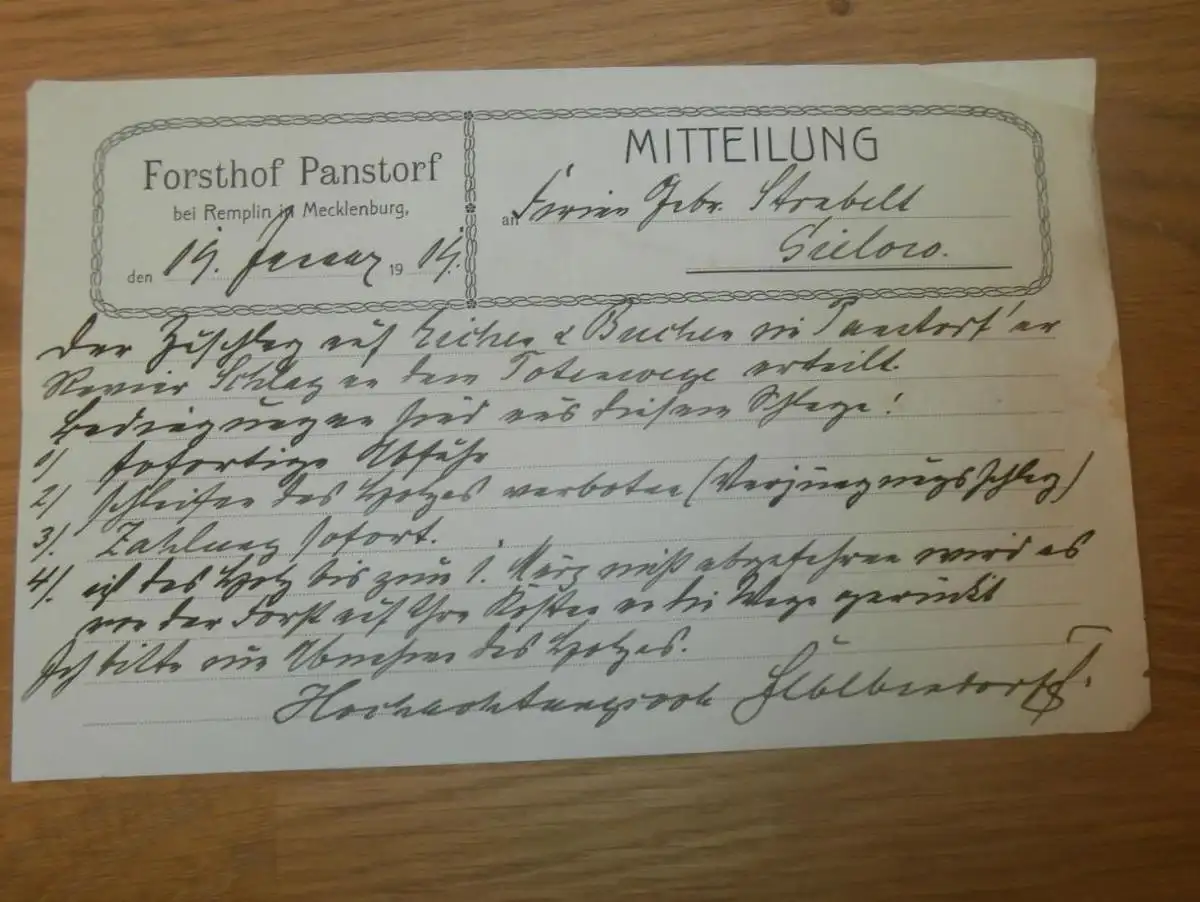 Forsthof Panstorf
bei Remplin in Mecklenburg,
den 14. Januar 1914.
MITTEILUNG
an Firma Gebr. Strabelt
Gielow.
Der Zuschlag auf Eichen & Buchen im Panstorf'er
Revier Schlag an dem Totenwege erteilt.
Bedingungen sind aus diesem Schlage:
1) sofortige Abfuhr
2) schleifen des Holzes verboten (Verjüngungsschlag)
3). Zahlung sofort.
4). ist das Holz bis zum 1. März nicht abgefahren wird es
von der Forst auf Ihre Kosten an die Wege gerückt
Ich bitte um Abnahme des Holzes.
Hochachtungsvoll